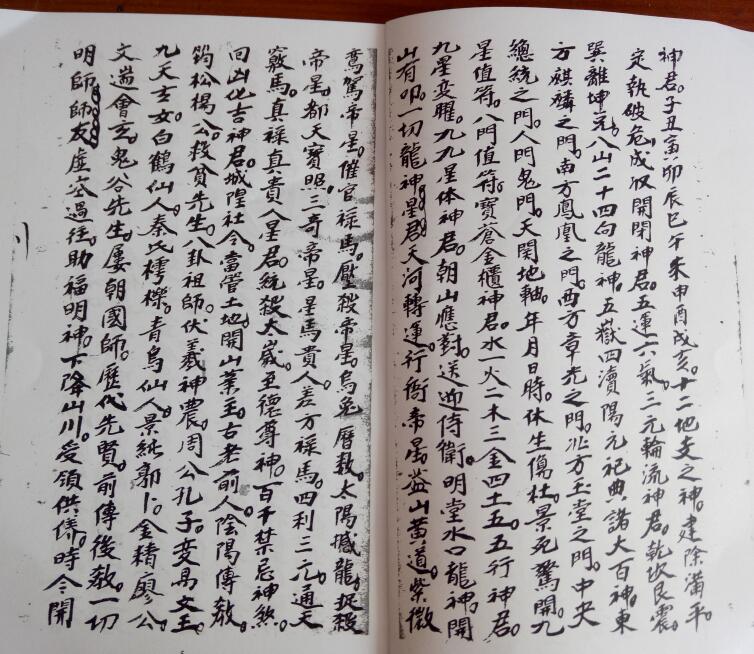 神君。子丑寅卯辰巳午未申酉戌亥。十二地支之神。建除滿平。
定執破危。成収開閉神君。五運六氣。三元輪流神君。乾坎艮震。
巽離坤兌。八山二十四向龍神。五嶽四瀆陽元祀典。諸大百神。東
方麒麟之門。南方鳳凰之門。西方章光之門。北方玉堂之門。中央
總統之門。人門鬼門。天関地軸。年月日時。休生傷杜。景死驚開。九
星值符。八門值符。寳蒼金櫃神君。水一火二木三金四土五。五行神君。
九星変曜。九九星体神君。朝山應對。送迎侍衛。明堂水口龍神。開
山有叩。一切龍神星君。天河轉運。行衙帝星。蓋山黄道。紫微
鸞駕帝星。催官祿馬。壓殺帝星。烏兔曆数。太陽撼龍。捉殺
帝星。都天寳照。三奇帝星。星馬貴人。差方祿馬。四利三元。通天
竅馬。真祿真貴。八星君。統殺太歲。至德尊神。百千禁忌神煞。
回凶化吉神君。城隍社令。當管土地。開山業主。古老前人。陰陽傳教。
筠松楊公。救貧先生。八卦祖師。伏羲神農。周公孔子。変易文王。
九天玄女。白鶴仙人。秦氏樗櫟。青烏仙人。景純郭卜。金精廖公。
文遄會玄。鬼谷先生。屡朝國師。歷代先賢。前傳後教。一切
明師師友。虚空過往。助福明神。下降山川。受領供俻。時今開